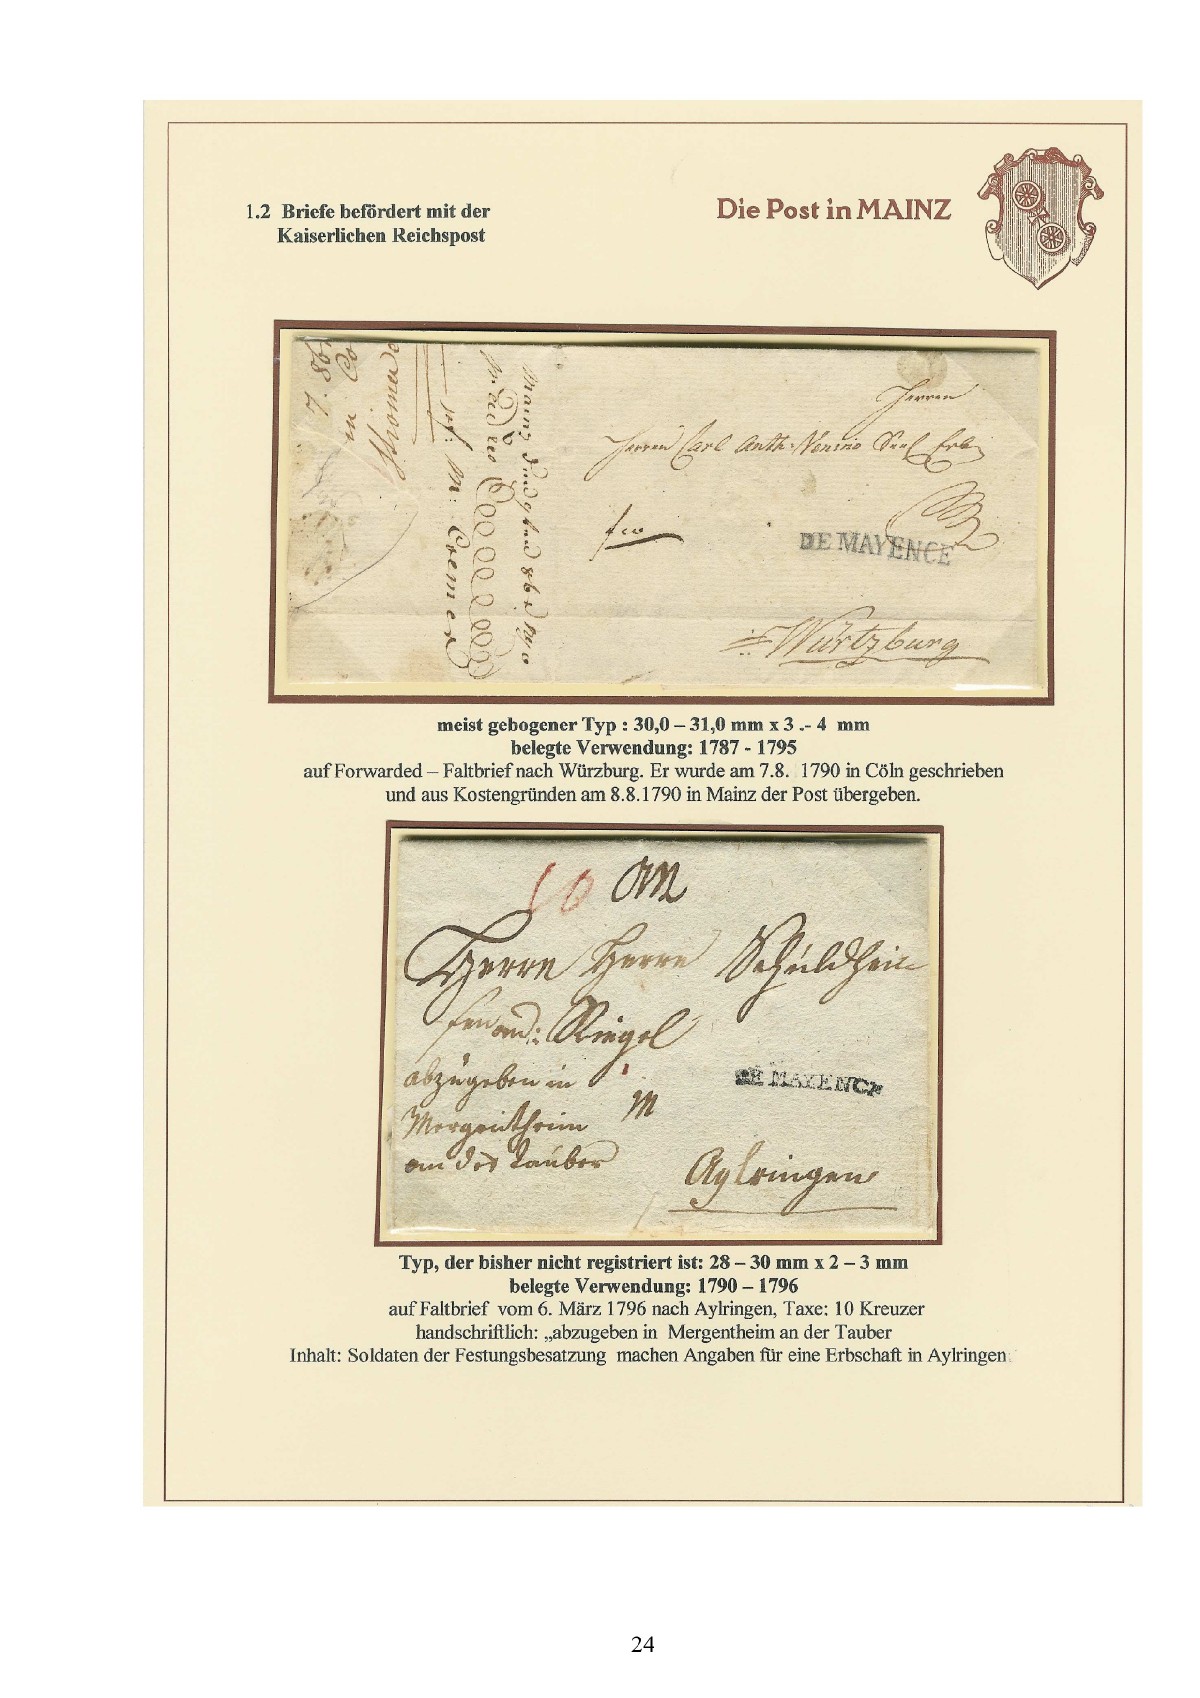 1.2 Briefe befördert mit der
Kaiserlichen Reichspost
Die Post in MAINZ
7. 8b
in Co
Thoma
M: Coemer
Mainz den 8b
Herren
Herren Carl Anth: Venino Seel Erb
DE MAYENCE
Würtzburg
meist gebogener Typ : 30,0 – 31,0 mm x 3 .- 4 mm
belegte Verwendung: 1787 - 1795
auf Forwarded – Faltbrief nach Würzburg. Er wurde am 7.8. 1790 in Cöln geschrieben
und aus Kostengründen am 8.8.1790 in Mainz der Post übergeben.
10 An
Herrn Herrn Schuldhein
Riegel
abzugeben in
Mergentheim
an der Tauber
DE MAYENCE
Aylringen
Typ, der bisher nicht registriert ist: 28 – 30 mm x 2 – 3 mm
belegte Verwendung: 1790 – 1796
auf Faltbrief vom 6. März 1796 nach Aylringen, Taxe: 10 Kreuzer
handschriftlich: „abzugeben in Mergentheim an der Tauber
Inhalt: Soldaten der Festungsbesatzung machen Angaben für eine Erbschaft in Aylringen
24